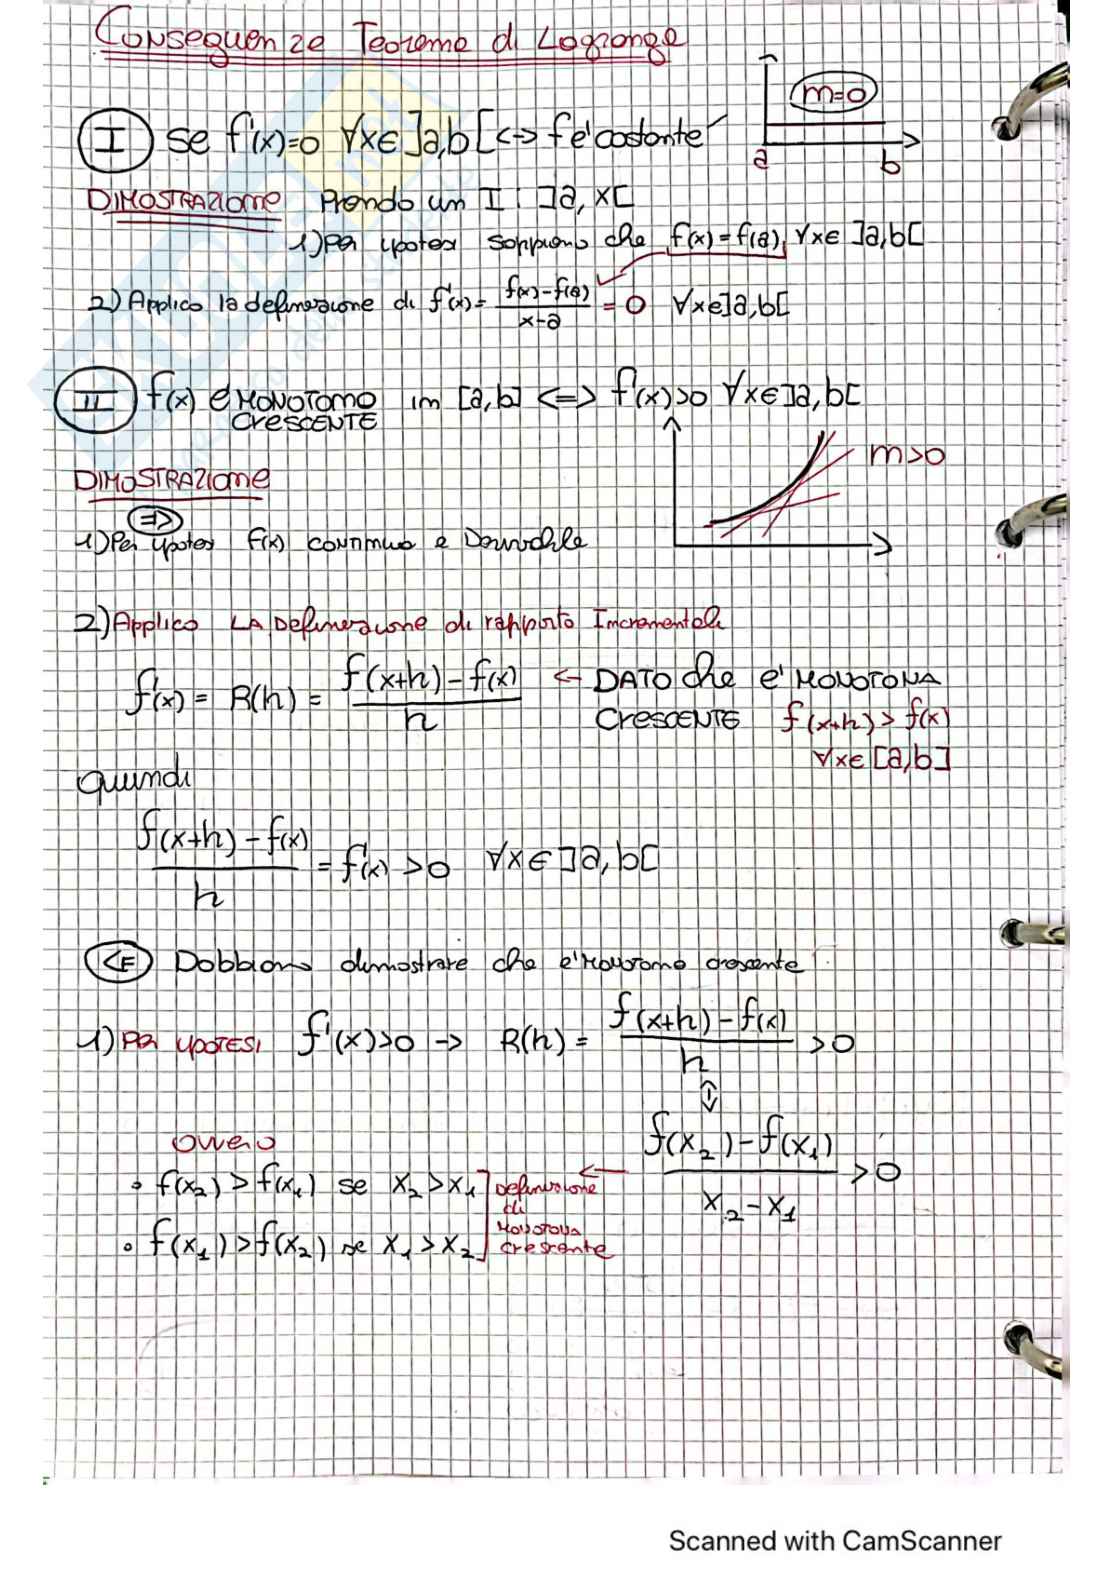 Conseguenze Teorema di Lagrange
m=0
a b
I se f'(x)=0 ∀x∈]a,b[ <-> f e' costante
DIMOSTRAZIONE Prendo un I: ]a,x[
1) Per ipotesi sappiamo che f(x)=f(a), ∀x∈]a,b[
2) Applico la definizione di f'(x)= f(x)-f(a) / x-a = 0 ∀x∈]a,b[
II f(x) è MONOTONO CRESCENTE im [a,b] <=> f'(x)>0 ∀x∈]a,b[
m>0
DIMOSTRAZIONE
=>
1) Per ipotesi f(x) continua e Derivabile
2) Applico LA Definizione di rapporto Incrementale
f'(x) = R(h) = f(x+h)-f(x) / h <- DATO che e' MONOTONA
CRESCENTE f(x+h) > f(x)
∀x∈[a,b]
quindi
f(x+h)-f(x) / h = f'(x) >0 ∀x∈]a,b[
<= Dobbiamo dimostrare che e' Monotona crescente
1) PER IPOTESI f'(x)>0 -> R(h) = f(x+h)-f(x) / h >0
ovvero f(x₂)-f(x₁) / x₂-x₁ >0
• f(x₂) > f(x₁) se x₂ > x₁
• f(x₁) > f(x₂) se x₁ > x₂
Definizione
di
MONOTONA
crescente
Scanned with CamScanner